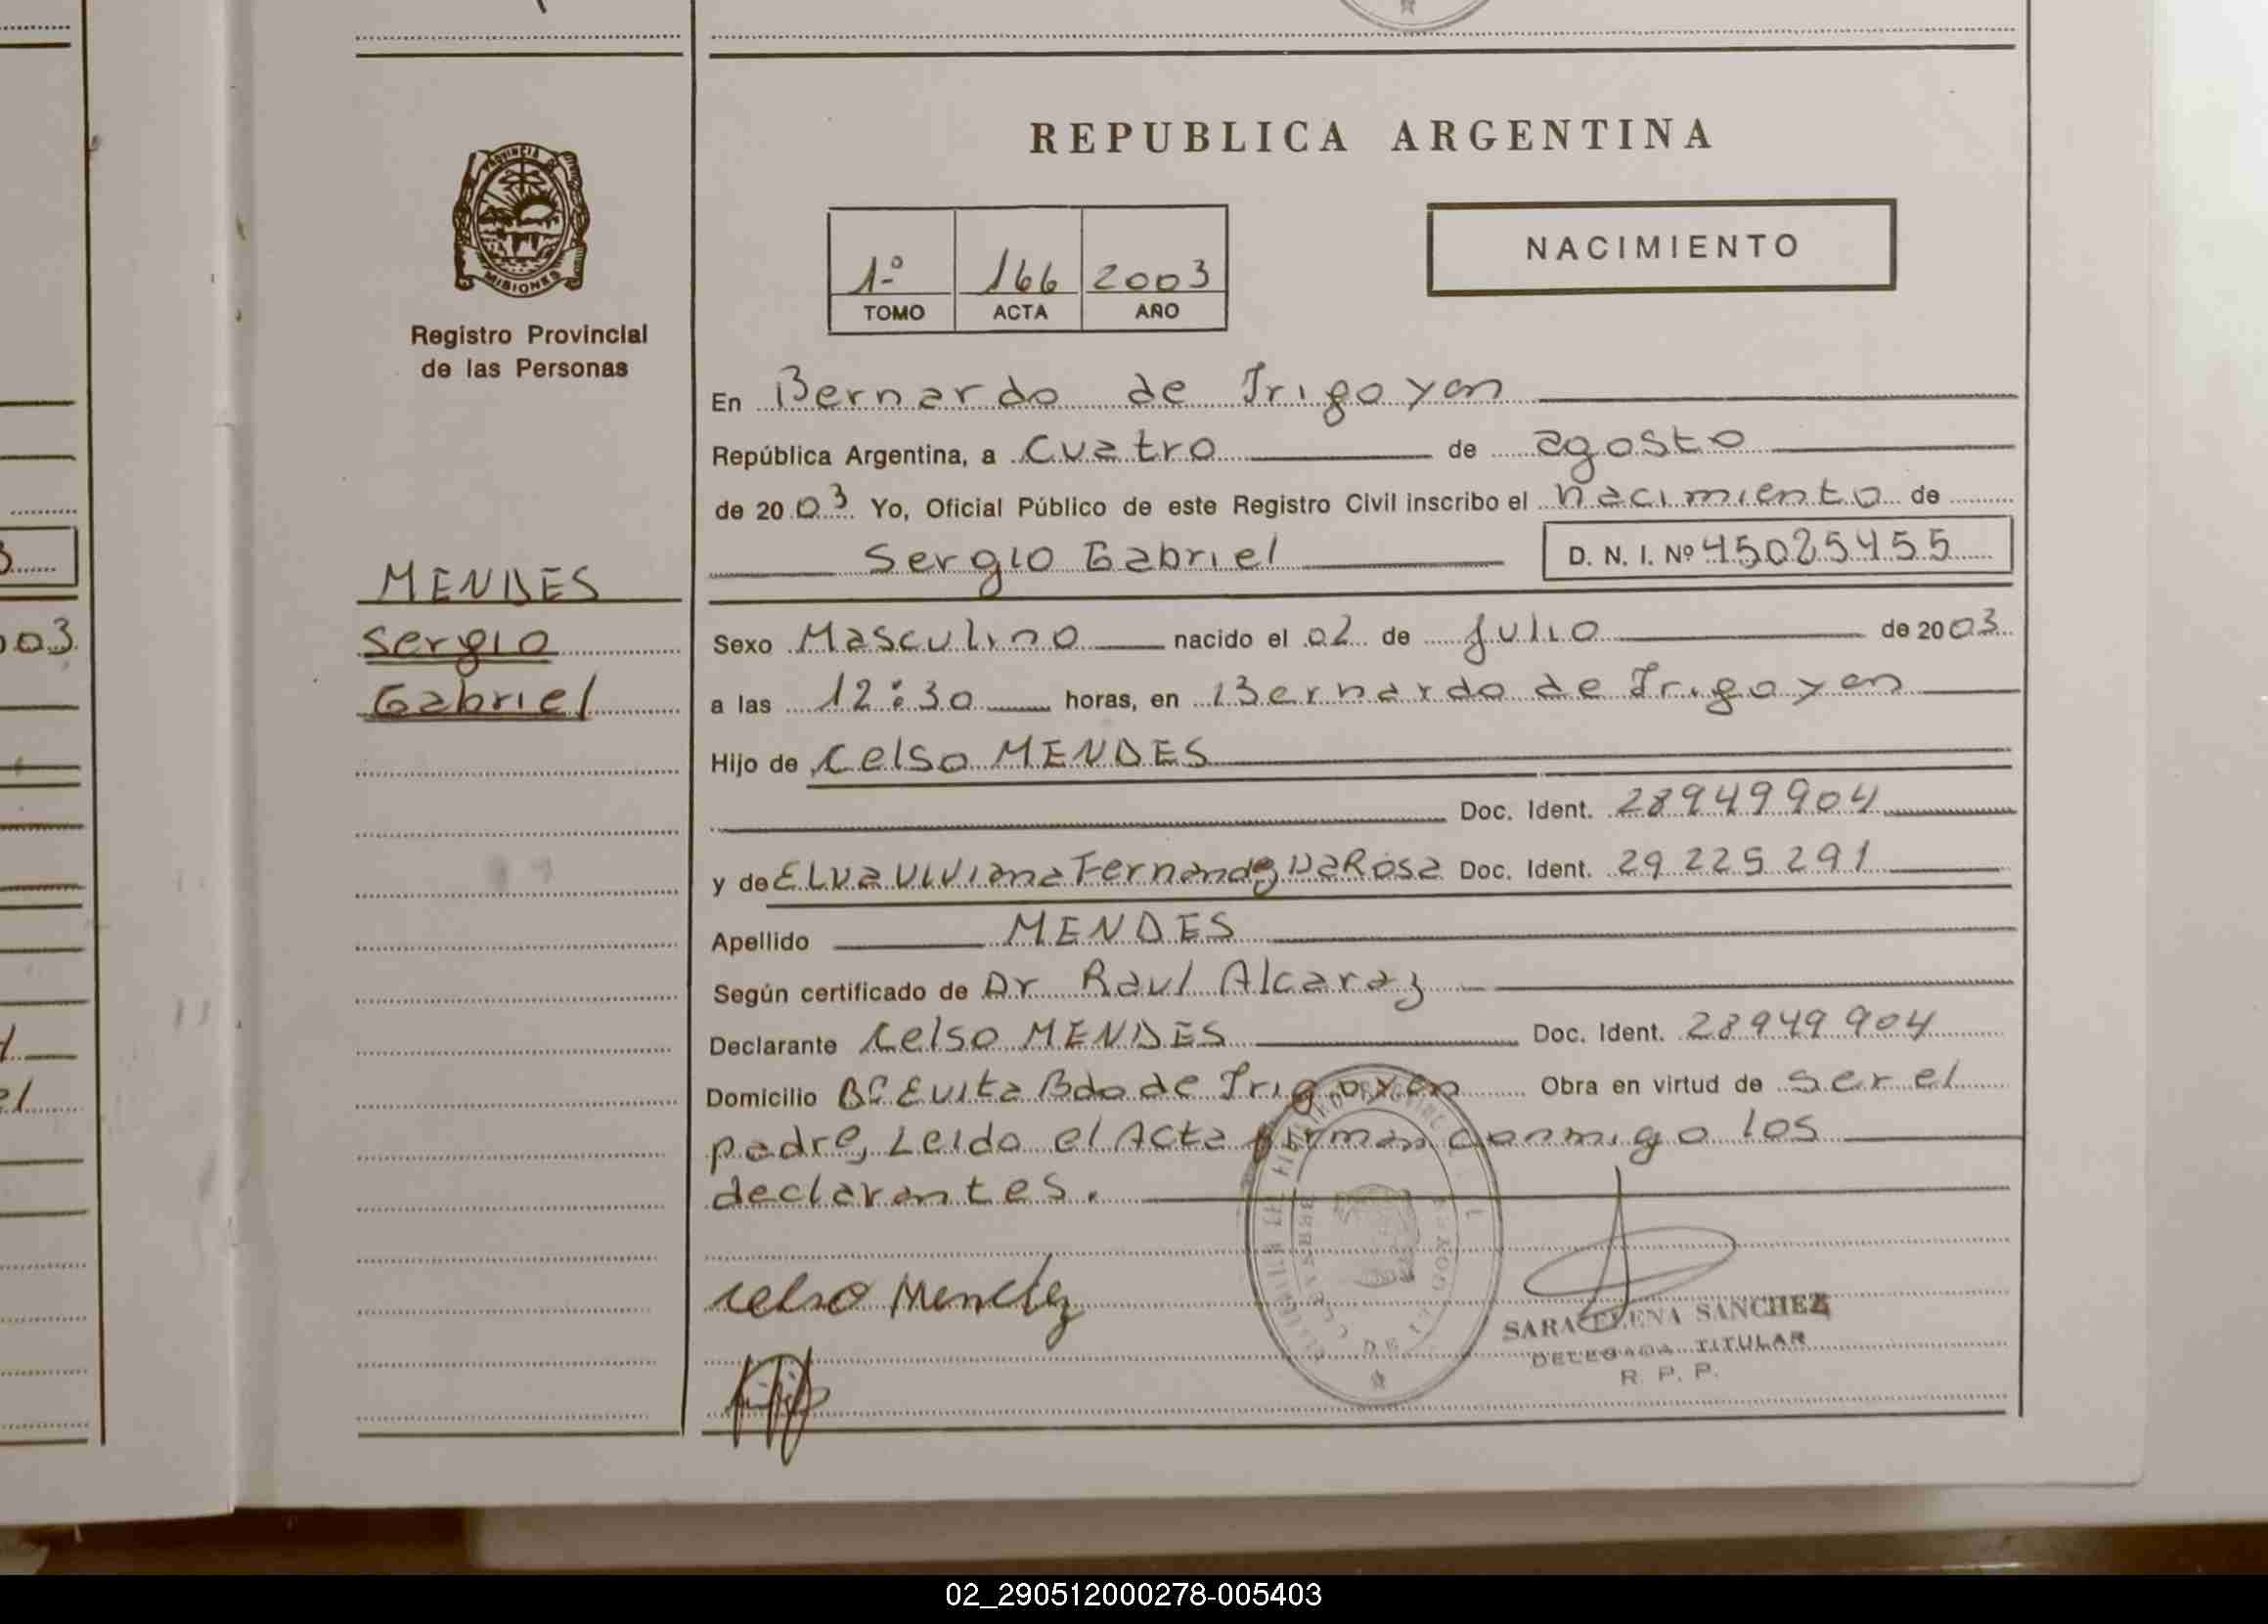 REPUBLICA ARGENTINA
PROVINCIA DE
MISIONES
Registro Provincial
de las Personas
1º 166 2003
TOMO ACTA AÑO
NACIMIENTO
En Bernardo de Irigoyen
República Argentina, a Cuatro de agosto
de 2003 Yo, Oficial Público de este Registro Civil inscribo el nacimiento de
Sergio Gabriel D. N. I. Nº 45025455
MENDES
Sergio
Gabriel
Sexo Masculino nacido el 02 de Julio de 2003
a las 12:30 horas, en Bernardo de Irigoyen
Hijo de Celso MENDES
Doc. Ident. 28949904
y de Elva Viviana Fernandez Da Rosa Doc. Ident. 29.225.291
Apellido MENDES
Según certificado de Dr Raul Alcaraz
Declarante Celso MENDES Doc. Ident. 28949904
Domicilio Bº Evita Bdo de Irigoyen Obra en virtud de ser el
padre, Leido el Acta firman conmigo los
declarantes.
Celso Mendez
SARA ELENA SANCHEZ
DELEGADA TITULAR
R. P. P.
03
02_290512000278-005403